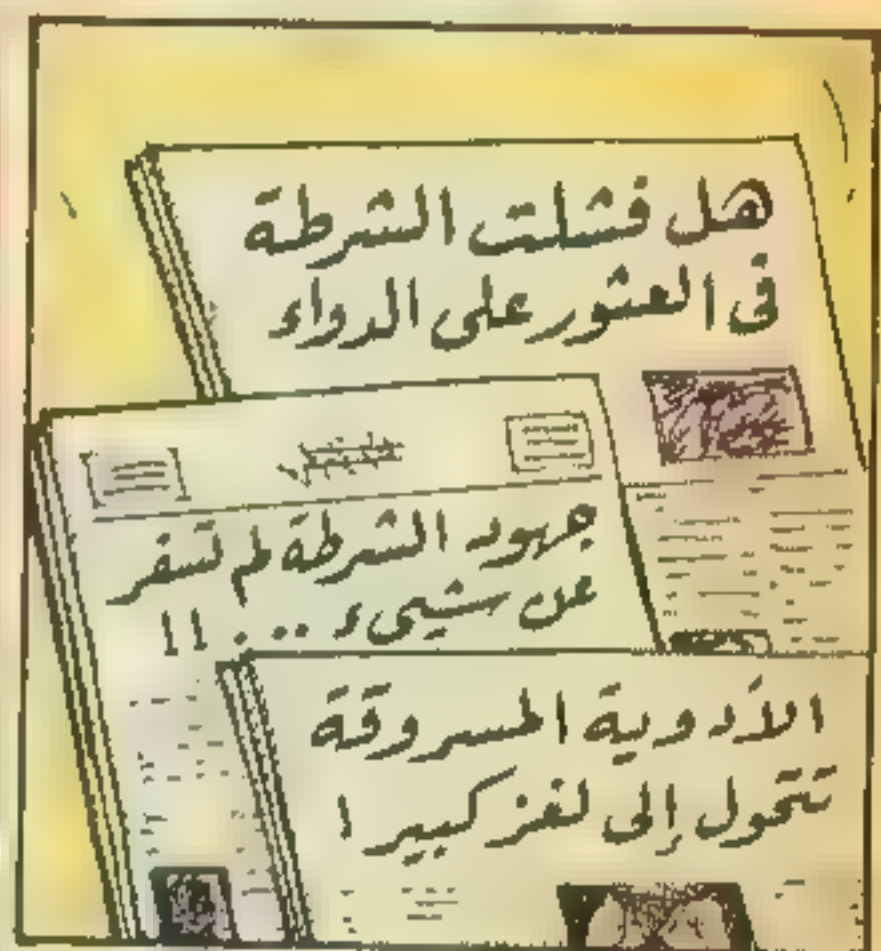 هل فشلت الشرطة
فى العثور على الدواء
جهود الشرطة لم تسفر
عن شيىء ... !!
الأدوية المسروقة
تتحول إلى لغز كبير !